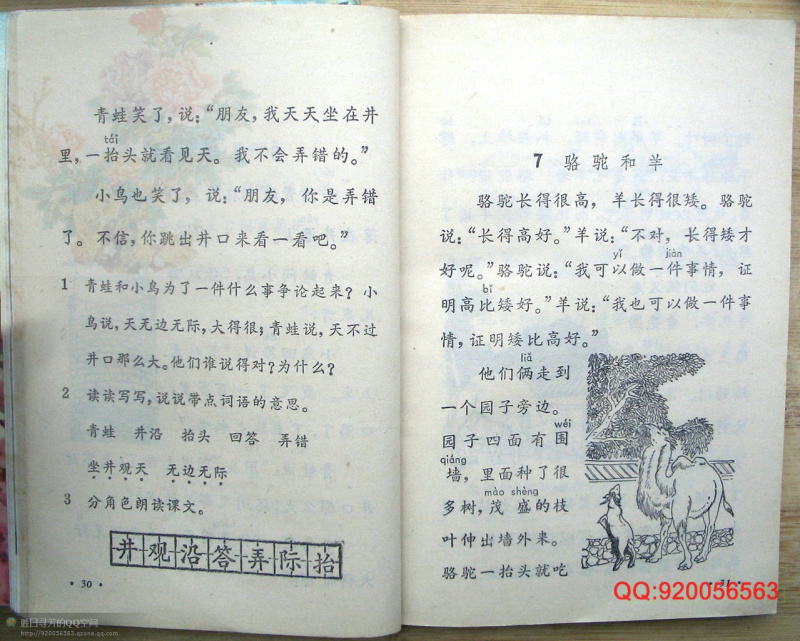 青蛙笑了,说:“朋友,我天天坐在井
tái
里,一抬头就看见天。我不会弄错的。”
小鸟也笑了,说:“朋友,你是弄错
了。不信,你跳出井口来看一看吧。”
1 青蛙和小鸟为了一件什么事争论起来?小
鸟说,天无边无际,大得很;青蛙说,天不过
井口那么大。他们谁说得对?为什么?
2 读读写写,说说带点词语的意思。
青蛙 井沿 抬头 回答 弄错
坐井观天 无边无际
3 分角色朗读课文。
井观沿答弄际抬
·30·
7 骆驼和羊
骆驼长得很高,羊长得很矮。骆驼
说:“长得高好。”羊说:“不对,长得矮才
yǐ jiàn
好呢。”骆驼说:“我可以做一件事情,证
bǐ
明高比矮好。”羊说:“我也可以做一件事
情,证明矮比高好。”
liǎ
他们俩走到
一个园子旁边。
wéi
园子四面有围
qiáng
墙,里面种了很
mào shèng
多树,茂盛的枝
叶伸出墙外来。
骆驼一抬头就吃
·31·
QQ:920056563
胜日寻芳的QQ空间
http://920056563.qzone.qq.com